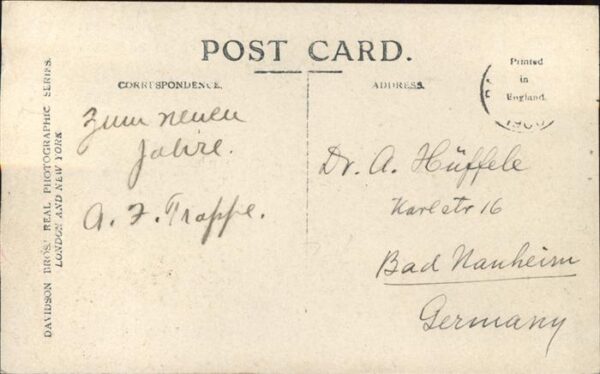 POST CARD.
CORRESPONDENCE.
ADDRESS.
Printed
in
England.
DAVIDSON BROS.' REAL PHOTOGRAPHIC SERIES.
LONDON AND NEW YORK
Zum neuen
Jahre.
A. F. Trappe.
Dr. A. Hüffele
Karlstr 16
Bad Nauheim
Germany